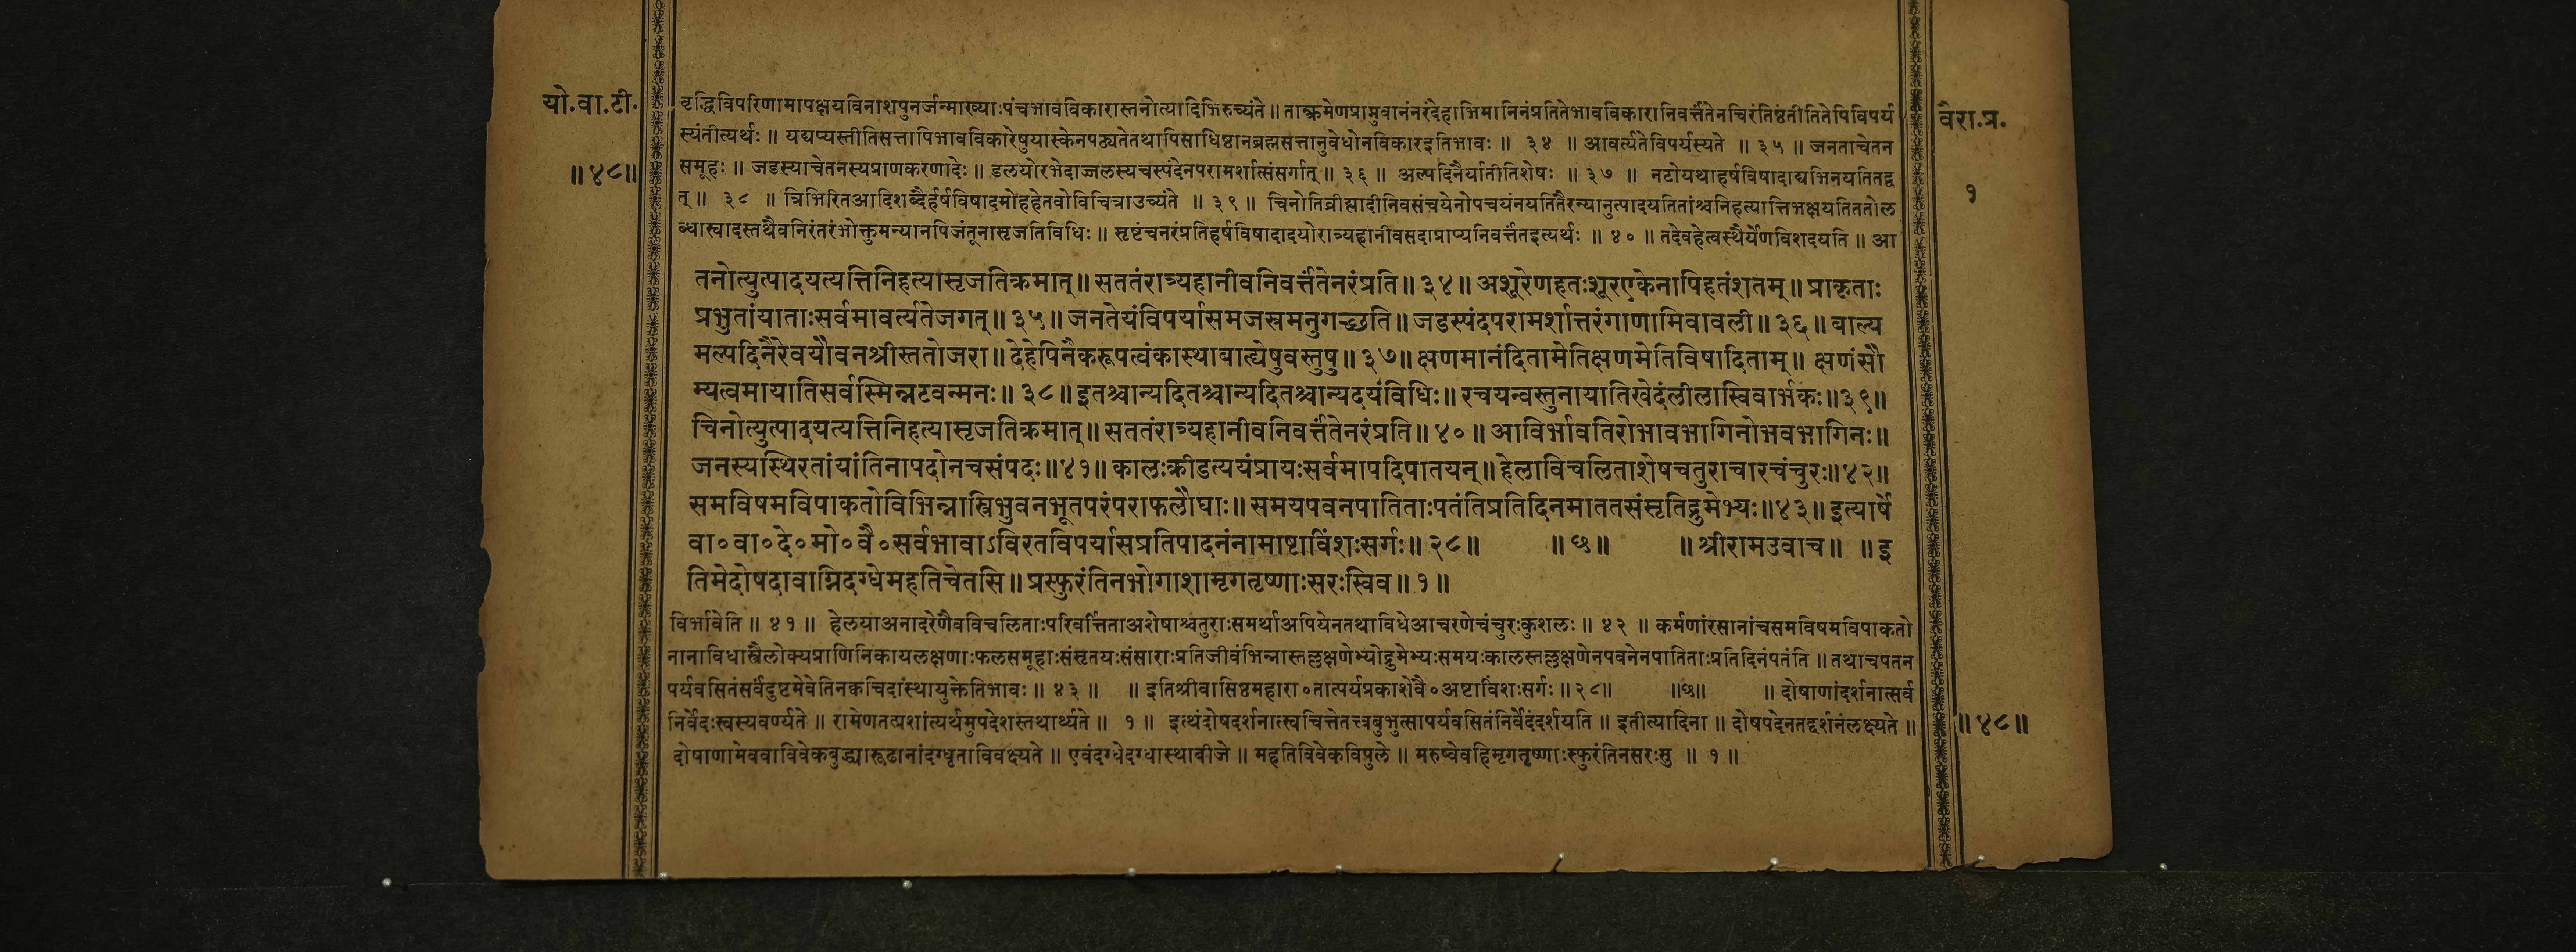 यो.वा.टी.
॥४८॥
वृद्धिविपरिणामापक्षयविनाशपुनर्जन्माख्याःपंचभावविकारास्तनोत्यादिभिरुच्यंते॥ तान्क्रमेणप्राप्नुवानंनरंदेहाभिमानिनंप्रतितेभावविकारानिवर्त्तंतेनचिरंतिष्ठंतीतितेपिविपर्य
स्यंतीत्यर्थः॥ यद्यप्यस्तीतिसत्तापिभावविकारेषुयास्केनपठ्यतेतथापिसाधिष्ठानब्रह्मसत्तानुवेधोनविकारइतिभावः॥ ३४ ॥ आवर्त्यतेविपर्यस्यते ॥ ३५ ॥ जनताचेतन
समूहः॥ जडस्याचेतनस्यप्राणकरणादेः॥ डलयोरभेदाज्जलस्यचस्पंदेनपरामर्शात्संसर्गात्॥ ३६ ॥ अल्पदिनैर्यातीतिशेषः ॥ ३७ ॥ नटोयथाहर्षविषादाद्यभिनयतितद्व
त्॥ ३८ ॥ त्रिभिरितआदिशब्दैर्हर्षविषादमोहहेतवोविचित्राउच्यंते ॥ ३९ ॥ चिनोतिव्रीह्यादीनिवसंचयेनोपचयंनयतितैरन्यानुत्पादयतितांश्चनिहत्यात्तिभक्षयतिततोल
ब्धास्वादस्तथैवनिरंतरंभोक्तुमन्यानपिजंतूनासृजतिविधिः॥ सृष्टंचनरंप्रतिहर्षविषादादयोरात्र्यहानीवसदाप्राप्यनिवर्त्तंतइत्यर्थः ॥ ४० ॥ तदेवहेत्वस्थैर्येणविशदयति॥ आ
तनोत्युत्पादयत्यत्तिनिहत्यासृजतिक्रमात्॥ सततंरात्र्यहानीवनिवर्त्तंतेनरंप्रति॥ ३४॥ अशूरेणहतःशूरएकेनापिहतंशतम्॥ प्राकृताः
प्रभुतांयाताःसर्वमावर्त्यतेजगत्॥ ३५॥ जनतेयंविपर्यासमजस्रमनुगच्छति॥ जडस्पंदपरामर्शात्तरंगाणामिवावली॥ ३६॥ बाल्य
मल्पदिनैरेवयौवनश्रीस्ततोजरा॥ देहेपिनैकरूपत्वंकास्थाबाह्येषुवस्तुषु॥ ३७॥ क्षणमानंदितामेतिक्षणमेतिविषादिताम्॥ क्षणंसौ
म्यत्वमायातिसर्वस्मिन्नटवन्मनः॥ ३८॥ इतश्चान्यदितश्चान्यदितश्चान्यदयंविधिः॥ रचयन्वस्तुनायातिखेदंलीलास्विवार्भकः॥३९॥
चिनोत्युत्पादयत्यत्तिनिहत्यासृजतिक्रमात्॥ सततंरात्र्यहानीवनिवर्त्तंतेनरंप्रति॥ ४०॥ आविर्भावतिरोभावभागिनोभवभागिनः॥
जनस्यस्थिरतांयांतिनापदोनचसंपदः॥४१॥ कालःक्रीडत्ययंप्रायःसर्वमापदिपातयन्॥ हेलाविचलिताशेषचतुराचारचंचुरः॥४२॥
समविषमविपाकतोविभिन्नास्त्रिभुवनभूतपरंपराफलौघाः॥ समयपवनपातिताःपतंतिप्रतिदिनमाततसंसृतिद्रुमेभ्यः॥४३॥ इत्यार्षे
वा०वा०दे०मो०वै०सर्वभावाऽविरतविपर्यासप्रतिपादनंनामाष्टाविंशःसर्गः॥ २८॥ ॥ छ॥ ॥ श्रीरामउवाच॥ ॥ इ
तिमेदोषदावाग्निदग्धेमहतिचेतसि॥ प्रस्फुरंतिनभोगाशामृगतृष्णाःसरःस्विव॥ १॥
विर्भावेति ॥ ४१ ॥ हेलयाअनादरेणैवविचलिताःपरिवर्त्तिताअशेषाश्चतुराःसमर्थाअपियेनतथाविधेआचरणेचंचुरःकुशलः॥ ४२ ॥ कर्मणांरसानांचसमविषमविपाकतो
नानाविधास्त्रैलोक्यप्राणिनिकायलक्षणाःफलसमूहाःसंसृतयःसंसाराःप्रतिजीवंभिन्नास्तल्लक्षणेभ्योद्रुमेभ्यःसमयःकालस्तल्लक्षणेनपवनेनपातिताःप्रतिदिनंपतंति॥ तथाचपतन
पर्यवसितंसर्वंदुष्टमेवेतिनक्वचिदास्थायुक्तेतिभावः॥ ४३ ॥ ॥ इतिश्रीवासिष्ठमहारा०तात्पर्यप्रकाशेवै०अष्टाविंशःसर्गः॥ २८॥ ॥छ॥ ॥ दोषाणांदर्शनात्सर्व
निर्वेदःस्वस्यवर्ण्यते॥ रामेणतत्प्रशांत्यर्थमुपदेशस्तथार्थ्यते॥ १ ॥ इत्थंदोषदर्शनात्स्वचित्तेतत्त्वबुभुत्सापर्यवसितंनिर्वेदंदर्शयति॥ इतीत्यादिना॥ दोषपदेनतद्दर्शनंलक्ष्यते॥
दोषाणामेववाविवेकबुद्ध्यारूढानांदग्धृताविवक्ष्यते॥ एवंदग्धेदग्धास्थाबीजे॥ महतिविवेकविपुले॥ मरुष्वेवहिमृगतृष्णाःस्फुरंतिनसरःसु ॥ १ ॥
वैरा.प्र.
१
॥४८॥